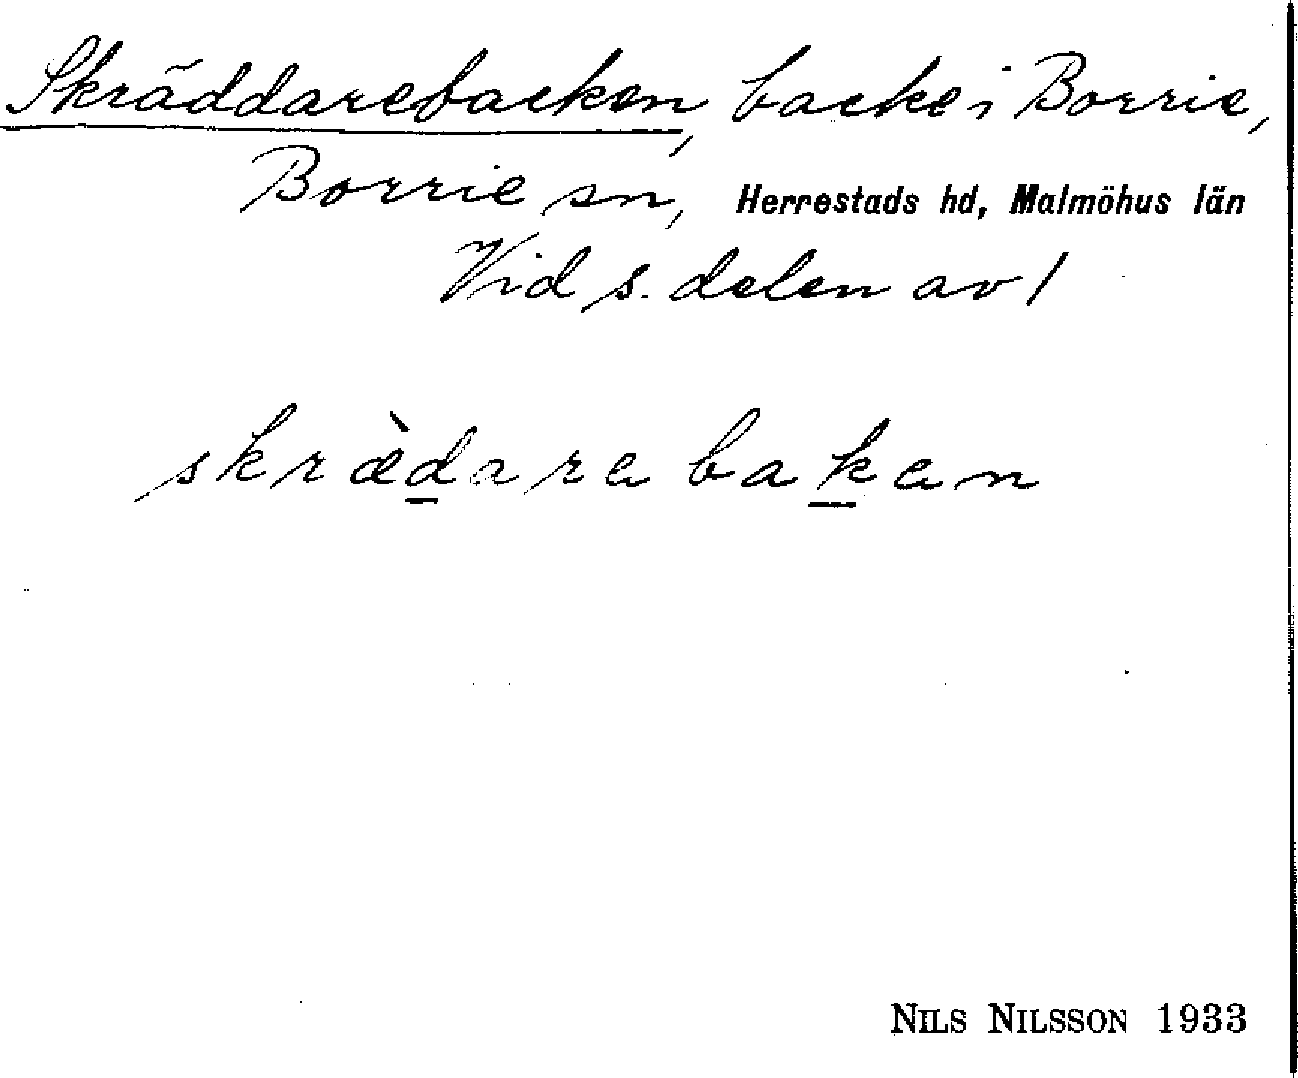 Skräddarebacken, backe i Borrie,
Borrie sn, Herrestads hd, Malmöhus län
Vid s. delen av 1
skræ̀d̲are bak̲en
NILS NILSSON 1933